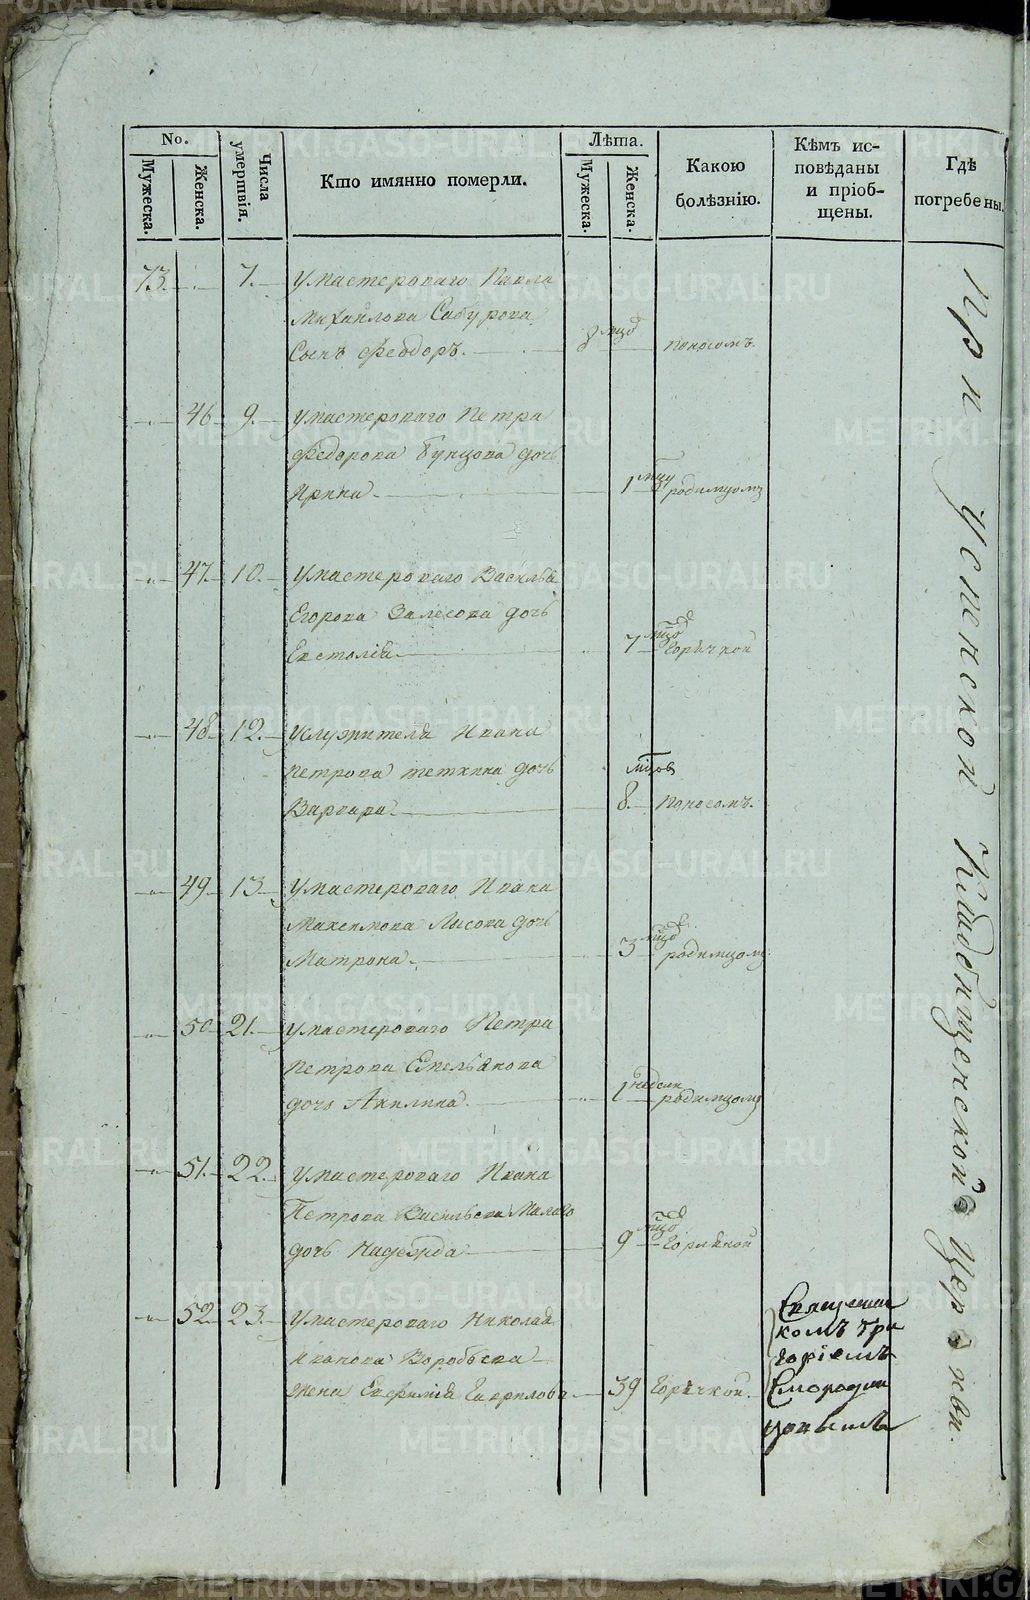 No.
Мужеска.
Женска.
Числа умертвія.
Кто имянно померли.
Лѣта.
Мужеска.
Женска.
Какою болѣзнію.
Кѣмъ ис-
повѣданы
и пріоб-
щены.
Гдѣ
погребены.
73. 7. Умастероваго Павла
Михайлова Сабурова
Сынъ Феодоръ. 8 мцов поносомъ
46 9. Умастероваго Петра
Федорова Бунцова дочь
Ирина 1 мцу родимцомъ
47. 10. Умастероваго Василья
Егорова Залесова дочь
Евстолія 7 мцов Горячкой
48. 12. Услужителя Ивана
Петрова тетюина дочь
мцов
Варвара 8. Поносомъ.
49 13 Умастероваго Ивана
Максимова Лысова дочь
Матрона. 3 мцов родимцомъ
50 21. Умастероваго Петра
Петрова Емельянова
дочь Акилина. 1 недели родимцомъ
51. 22. Умастероваго Ивана
Петрова Васильева Малаго
дочь Надежда 9 мцов Горячкой
52 23. Умастероваго Николая
Иванова Воробьева
жена Евфимія Гаврилова 39 Горячкой.
Священни
комъ Гри
горіемъ
Смородин
цовымъ
При Успенской Кладбищенской церкви.
METRIKI.GASO-URAL.RU